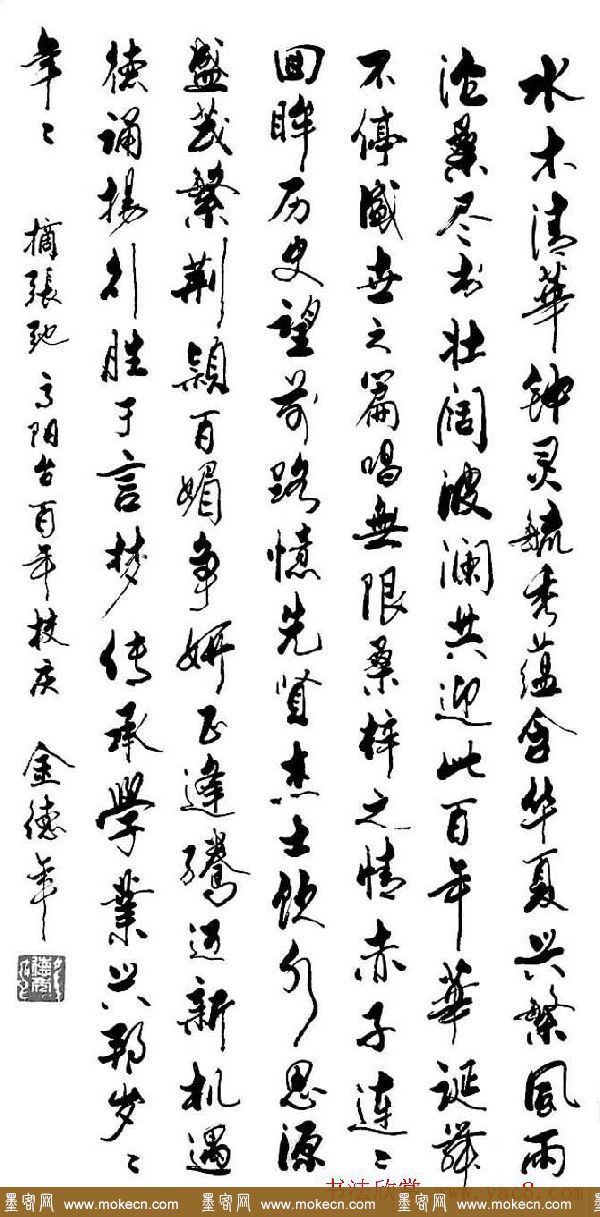 水木清華钟灵毓秀蕴含华夏兴繁风雨
沧桑尽书壮阔波澜共迎此百年華诞
不停盛世之篇唱無限桑梓之情赤子連〻
回眸历史望前路憶先贤杰士饮水思源
盛茂繁荆颖百媚争妍正逢迈新机遇
德诵扬引胜于言梦传承學業兴邦岁〻
年〻
摘張驰高阳台百年校庆 金德年
书法欣赏 www.yac8.com
墨客网 www.mokecn.com 墨客网 www.mokecn.com 墨客网 www.mokecn.com